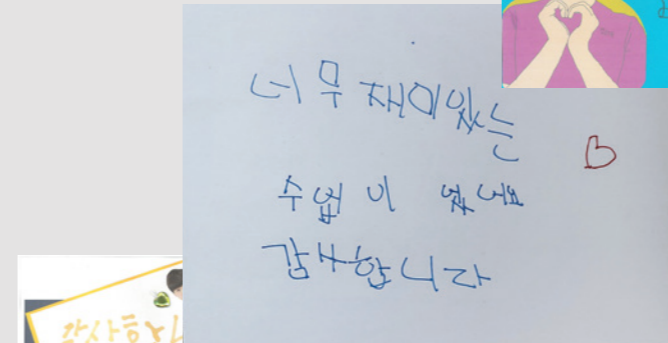 너무 재미있는
수업이 었너요
감사합니다
감사합니